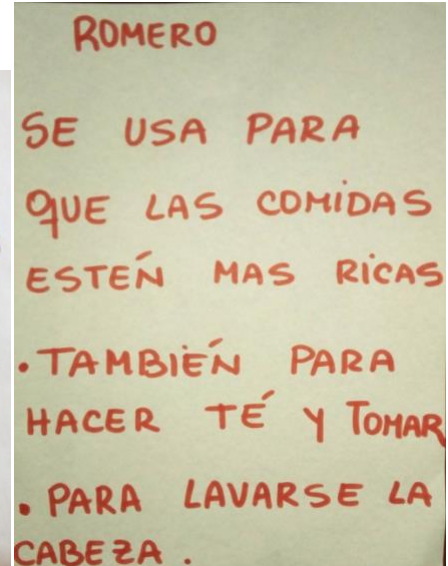 ROMERO
SE USA PARA
QUE LAS COMIDAS
ESTÉN MAS RICAS
. TAMBIÉN PARA
HACER TÉ Y TOMAR
. PARA LAVARSE LA
CABEZA .